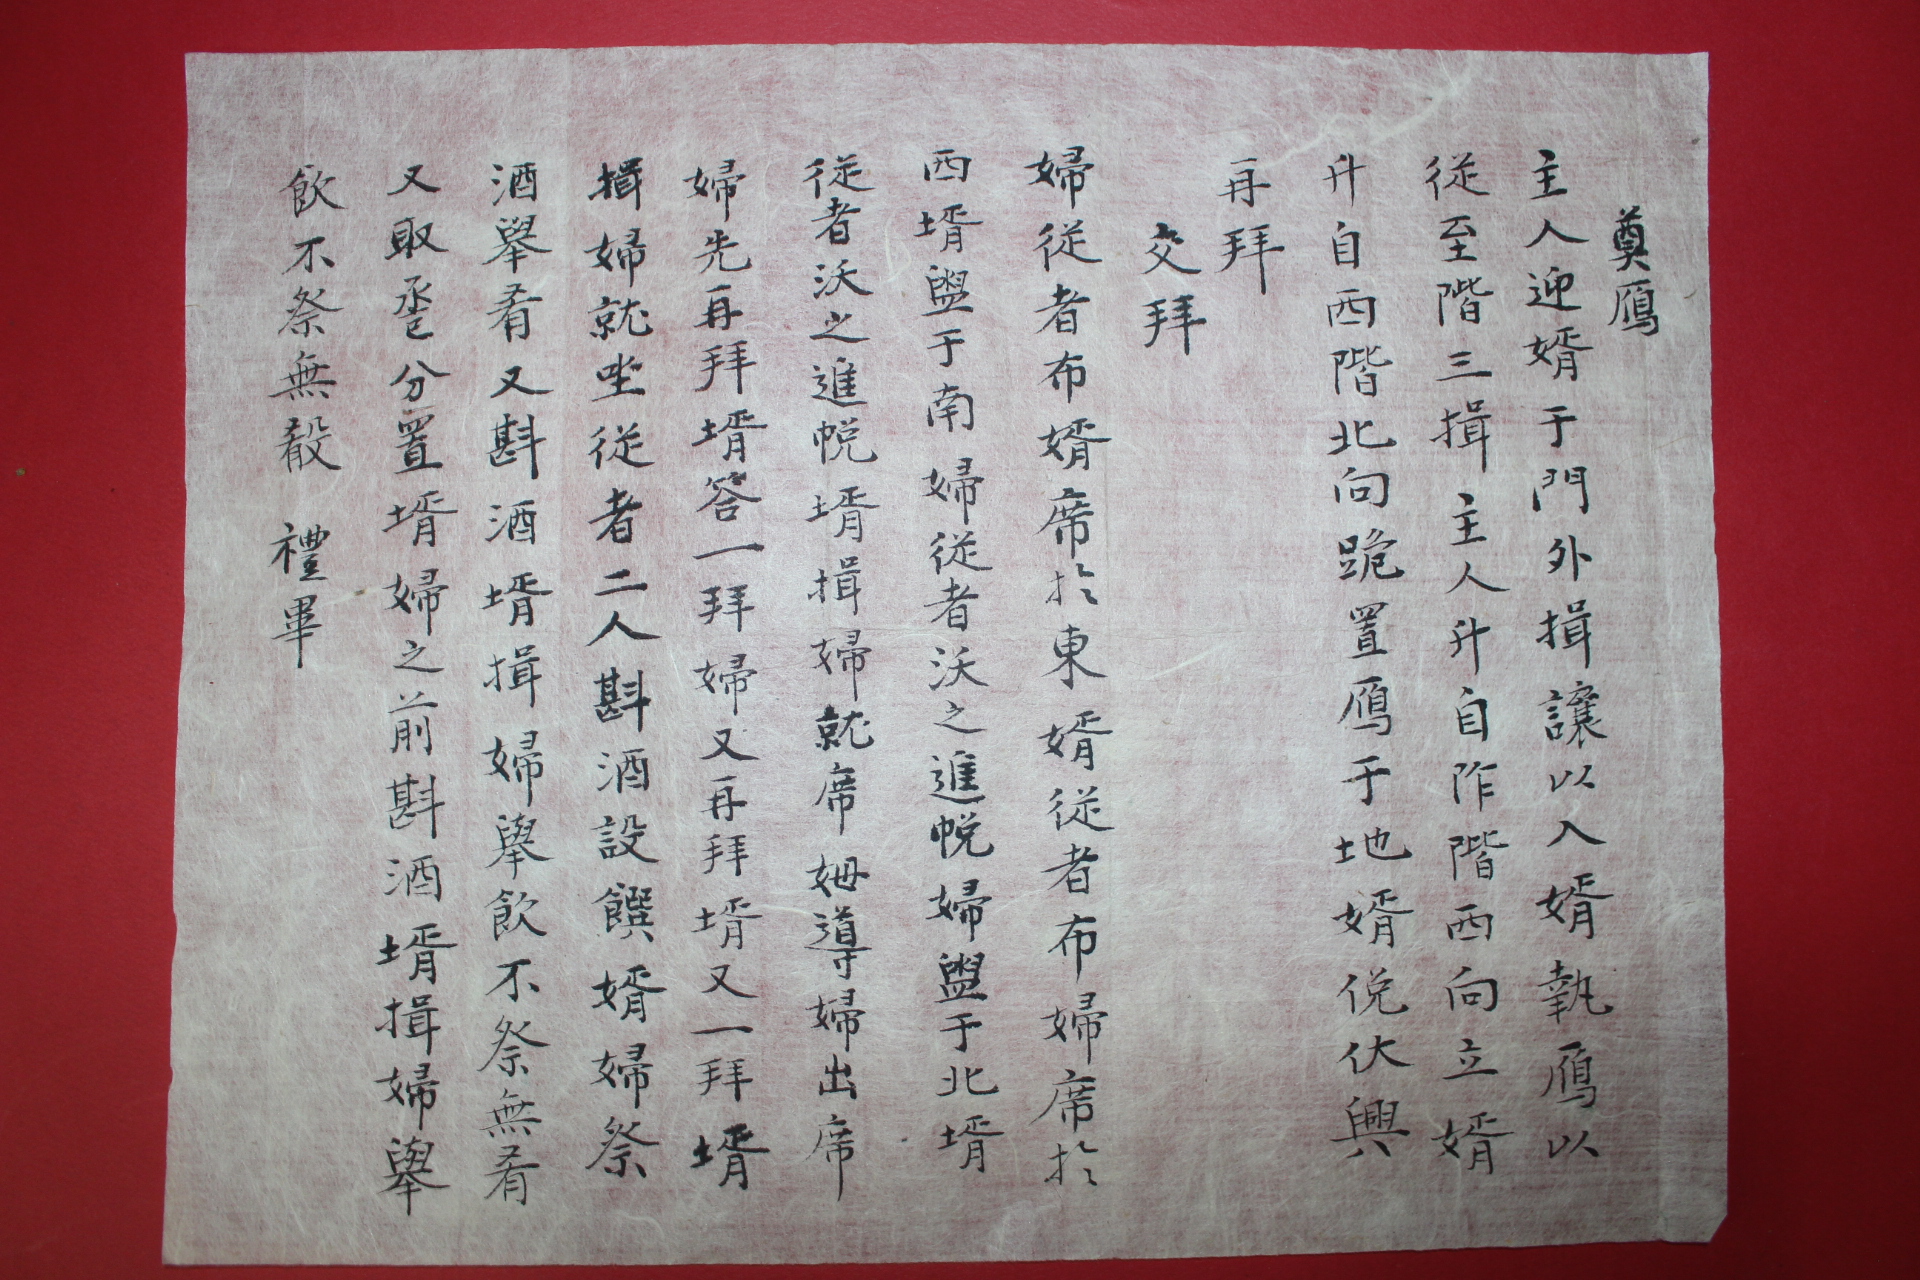 奠鴈
主人迎婿于門外揖讓以入婿執鴈以
從至階三揖主人升自阼階西向立婿
升自西階北向跪置鴈于地婿俛伏興
再拜
交拜
婦從者布婿席於東婿從者布婦席於
西壻盥于南婦從者沃之進帨婦盥于北壻
從者沃之進帨壻揖婦就席姆導婦出席
婦先再拜壻答一拜婦又再拜壻又一拜壻
揖婦就坐從者二人斟酒設饌婿婦祭
酒舉肴又斟酒壻揖婦舉飮不祭無肴
又取巹分置壻婦之前斟酒壻揖婦舉
飮不祭無殽 禮畢